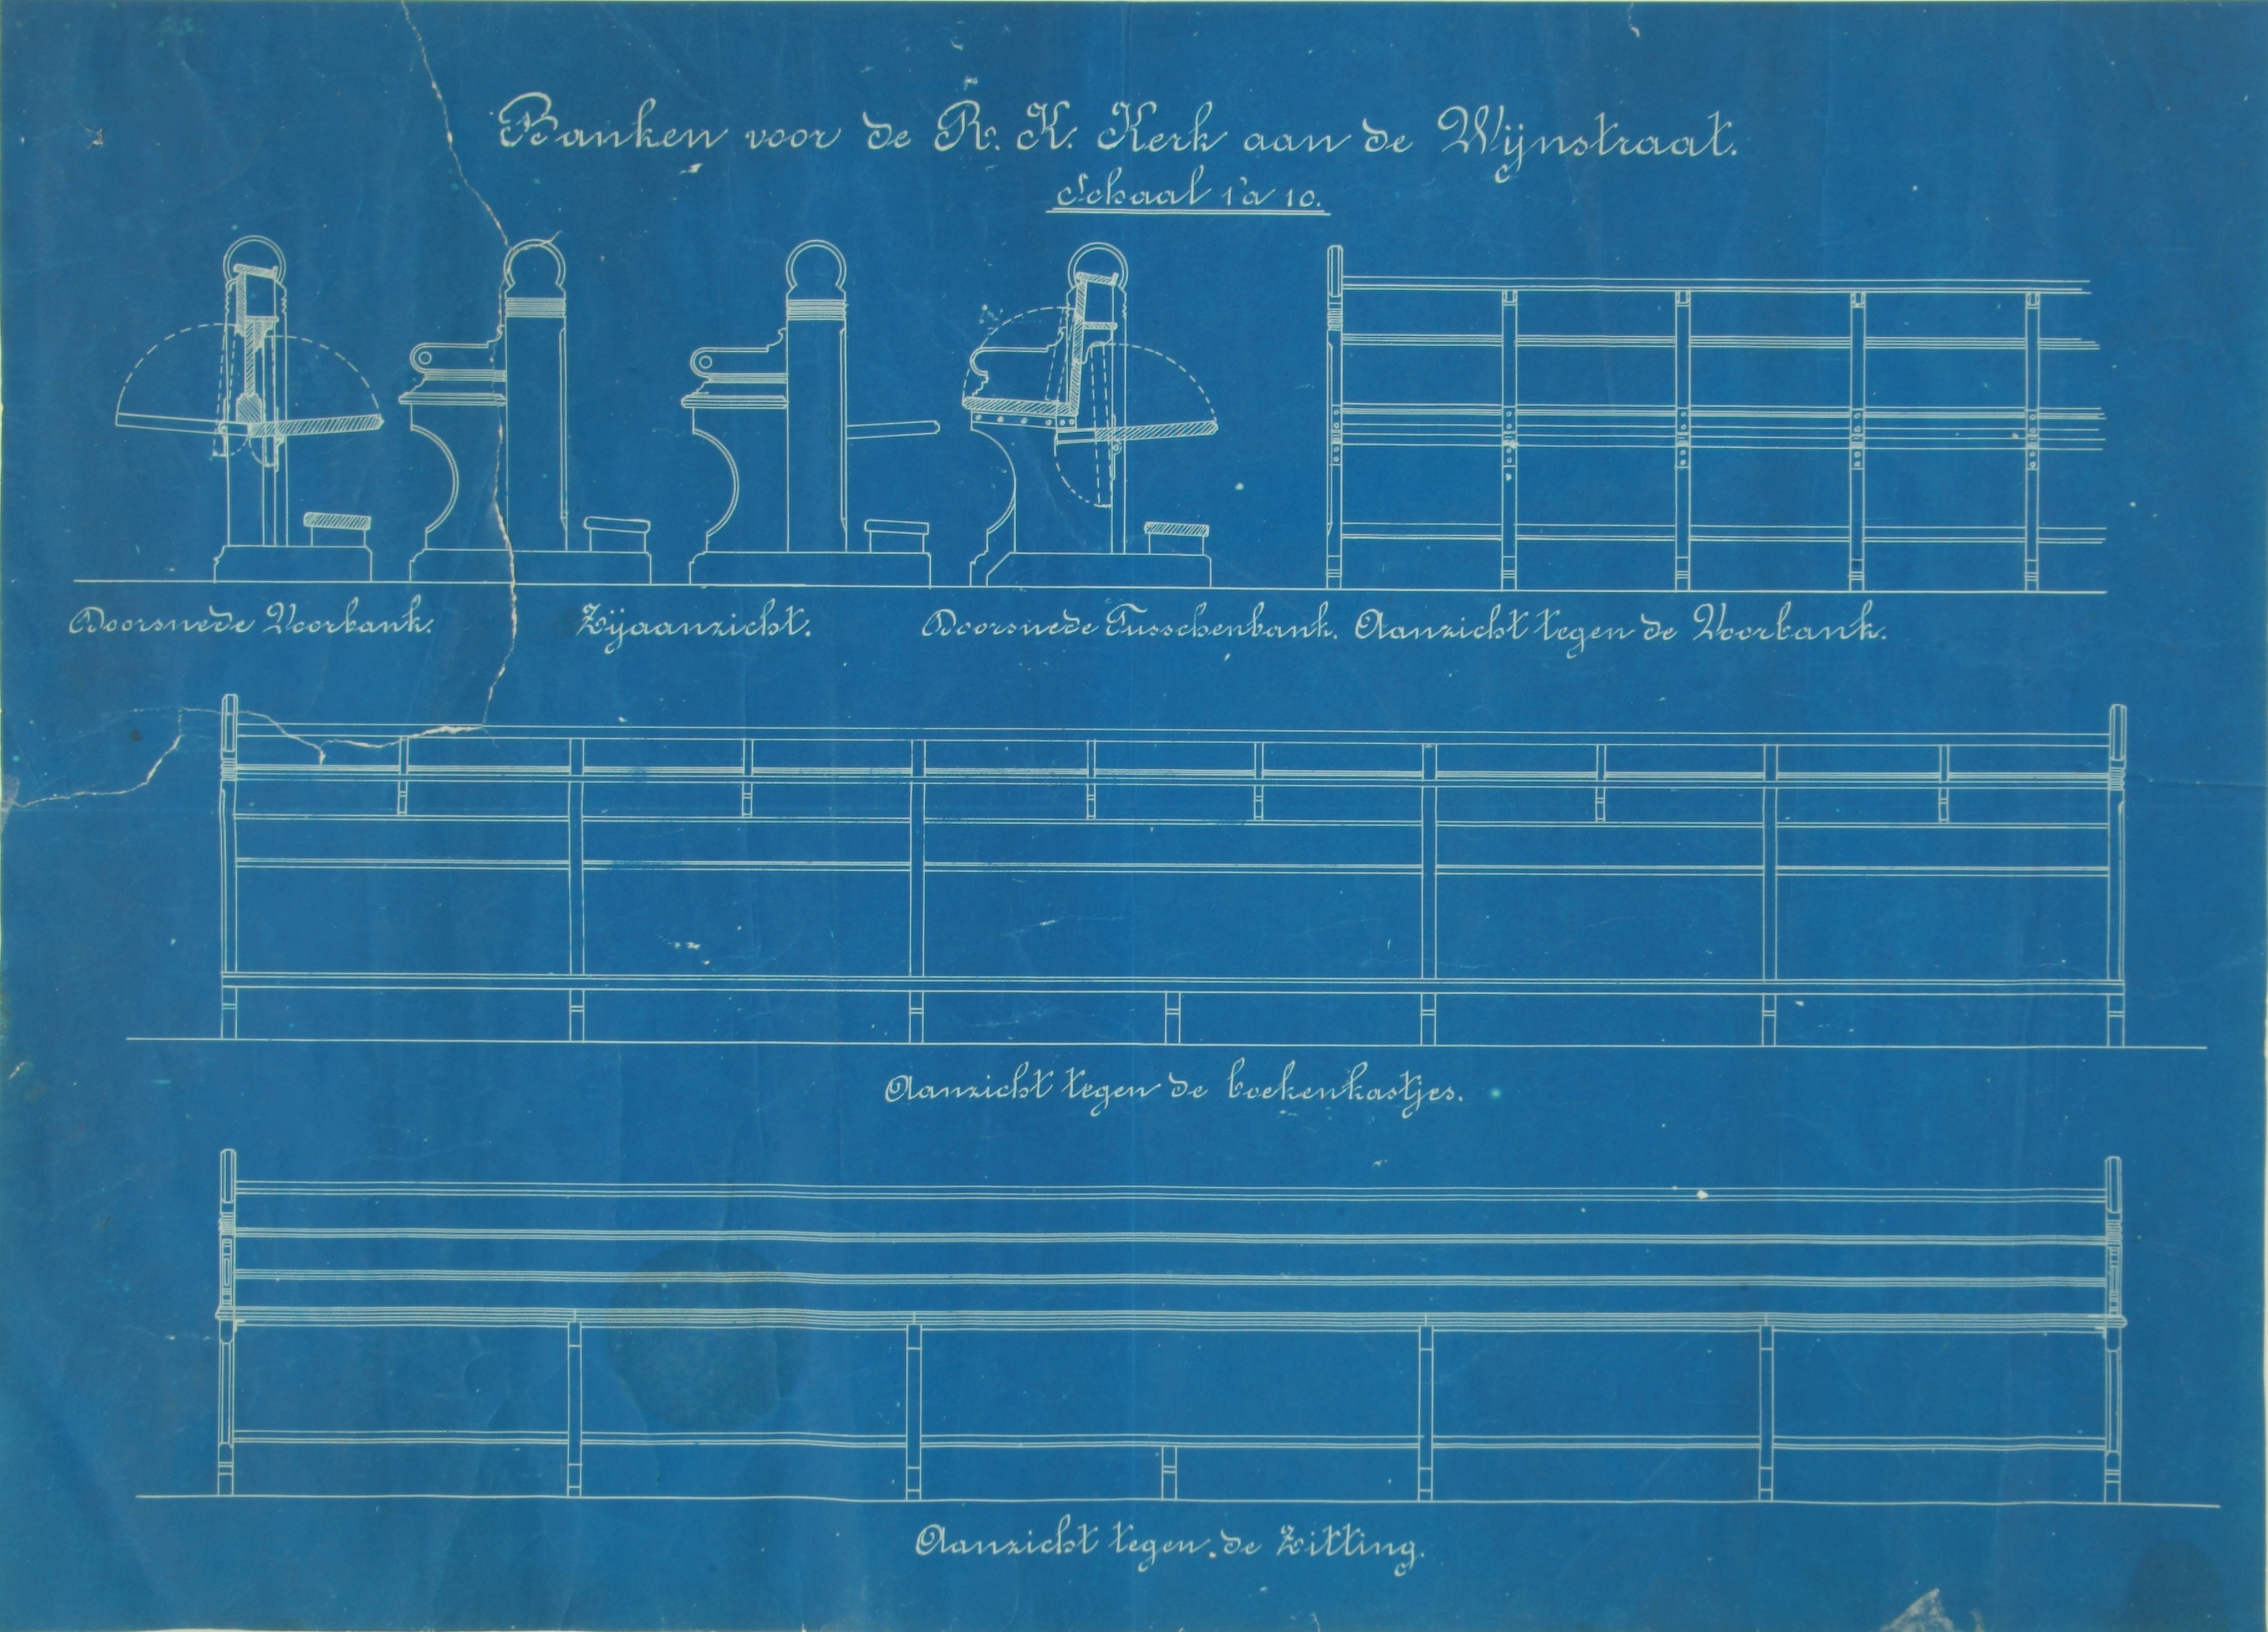 Banken voor de R. K. Kerk aan de Wijnstraat.
Schaal 1 a 10.
Doorsnede Voorbank.
Zijaanzicht.
Doorsnede Tusschenbank.
Aanzicht tegen de Voorbank.
Aanzicht tegen de boekenkastjes.
Aanzicht tegen de Zitting.